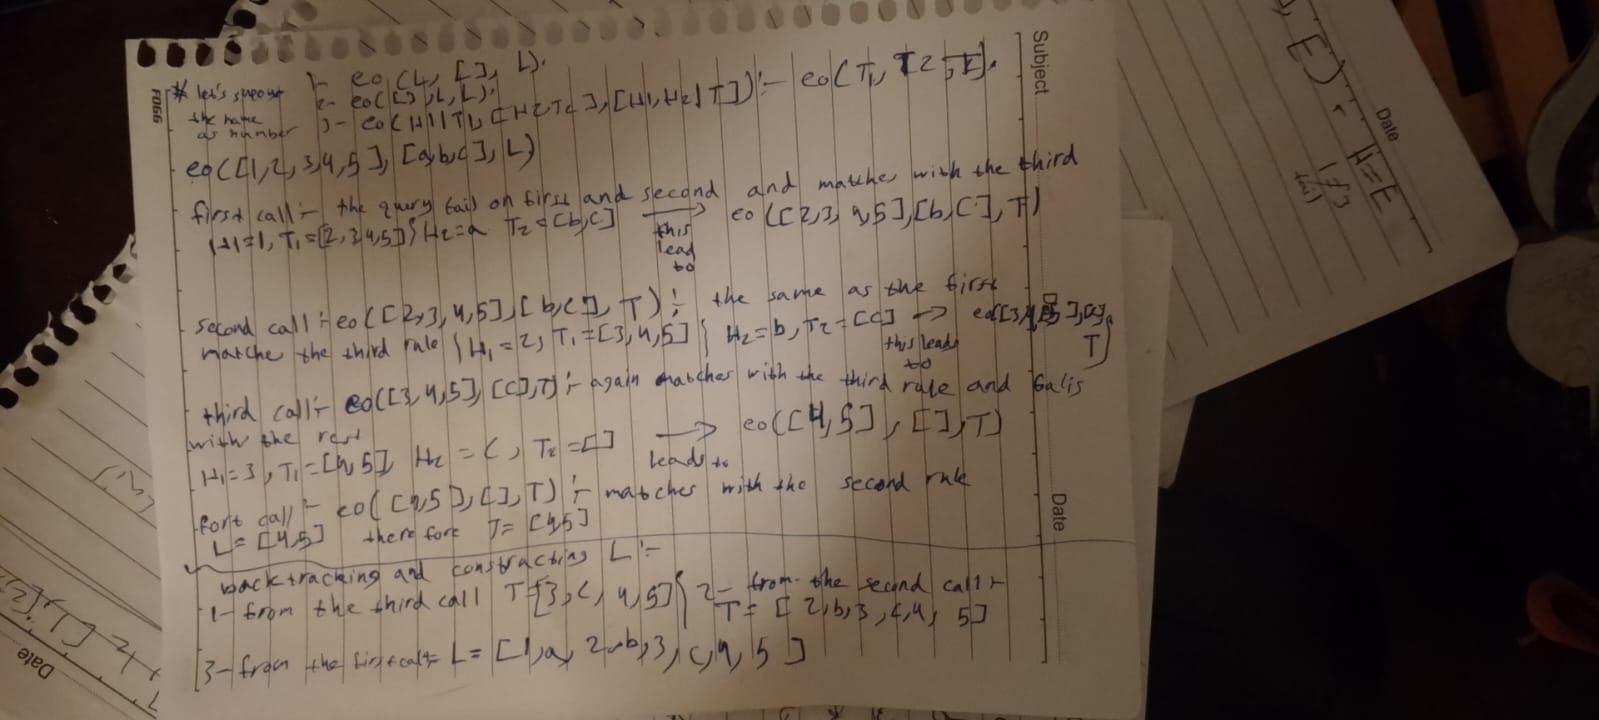 Subject
Date
F066
* let's supose
the name
as number
1- eo(L, [], L).
2- eo([], L, L).
3- eo(H1|T1, [H2,T2], [H1,H2|T]) :- eo(T1, T2, T).
eo([1,2,3,4,5], [a,b,c], L)
first call:- the query fails on first and second and matches with the third
H1=1, T1=[2,3,4,5] } H2=a T2=[b,c] this lead to → eo([2,3,4,5],[b,c],T)
second call:- eo([2,3,4,5],[b,c],T) :- the same as the first
matche the third rule { H1=2, T1=[3,4,5] { H2=b, T2=[c] → this leads to eo([3,4,5],[c], T)
third call:- eo([3,4,5],[c],T) :- again matches with the third rule and falis
with the rest
H1=3, T1=[4,5], H2=c, T2=[] → leads to eo([4,5],[],T)
fort call:- eo([4,5],[],T) :- matches with the second rule
L=[4,5] therefore T=[4,5]
Date
backtracking and constracting L:-
1- from the third call T=[3,c,4,5] { 2- from the second call:-
T=[2,b,3,c,4,5]
3- from the first call:- L=[1,a,2,b,3,c,4,5]
Date
H=E
E)
1≠3
fail
Date